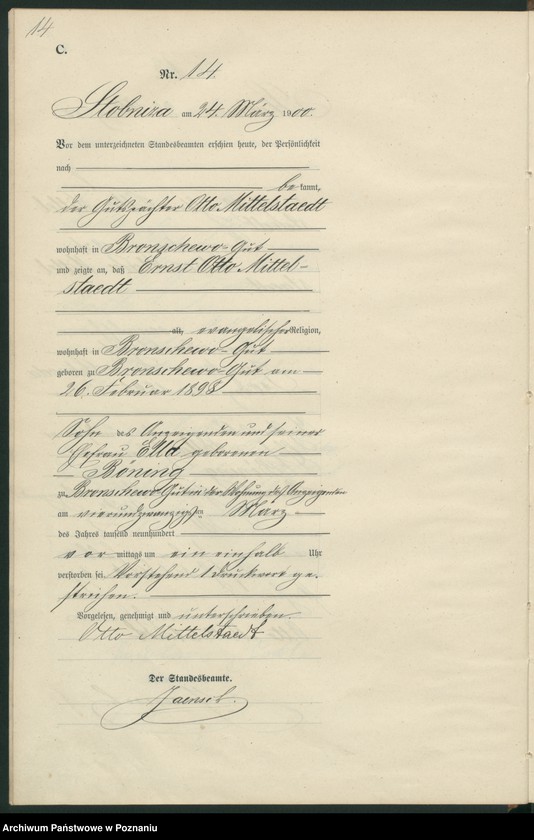 14
C.
Nr. 14.
Stobnica am 24. März 1900.
Vor dem unterzeichneten Standesbeamten erschien heute, der Persönlichkeit
nach
bekannt,
der Gutspächter Otto Mittelstaedt
wohnhaft in Bronschewo-Gut
und zeigte an, daß Ernst Otto Mittel-
staedt
alt, evangelischer Religion,
wohnhaft in Bronschewo-Gut
geboren zu Bronschewo-Gut am
26. Februar 1898
Sohn des Anzeigenden und seiner
Ehefrau Ella geborenen
Böning
zu Bronschewo-Gut in der Wohnung des Anzeigenden
am vierundzwanzigsten März
des Jahres tausend neunhundert
vor mittags um ein einhalb Uhr
verstorben sei. Vorstehend 1 Druckwort ge-
strichen.
Vorgelesen, genehmigt und unterschrieben.
Otto Mittelstaedt
Der Standesbeamte.
Jaensch.
Archiwum Państwowe w Poznaniu